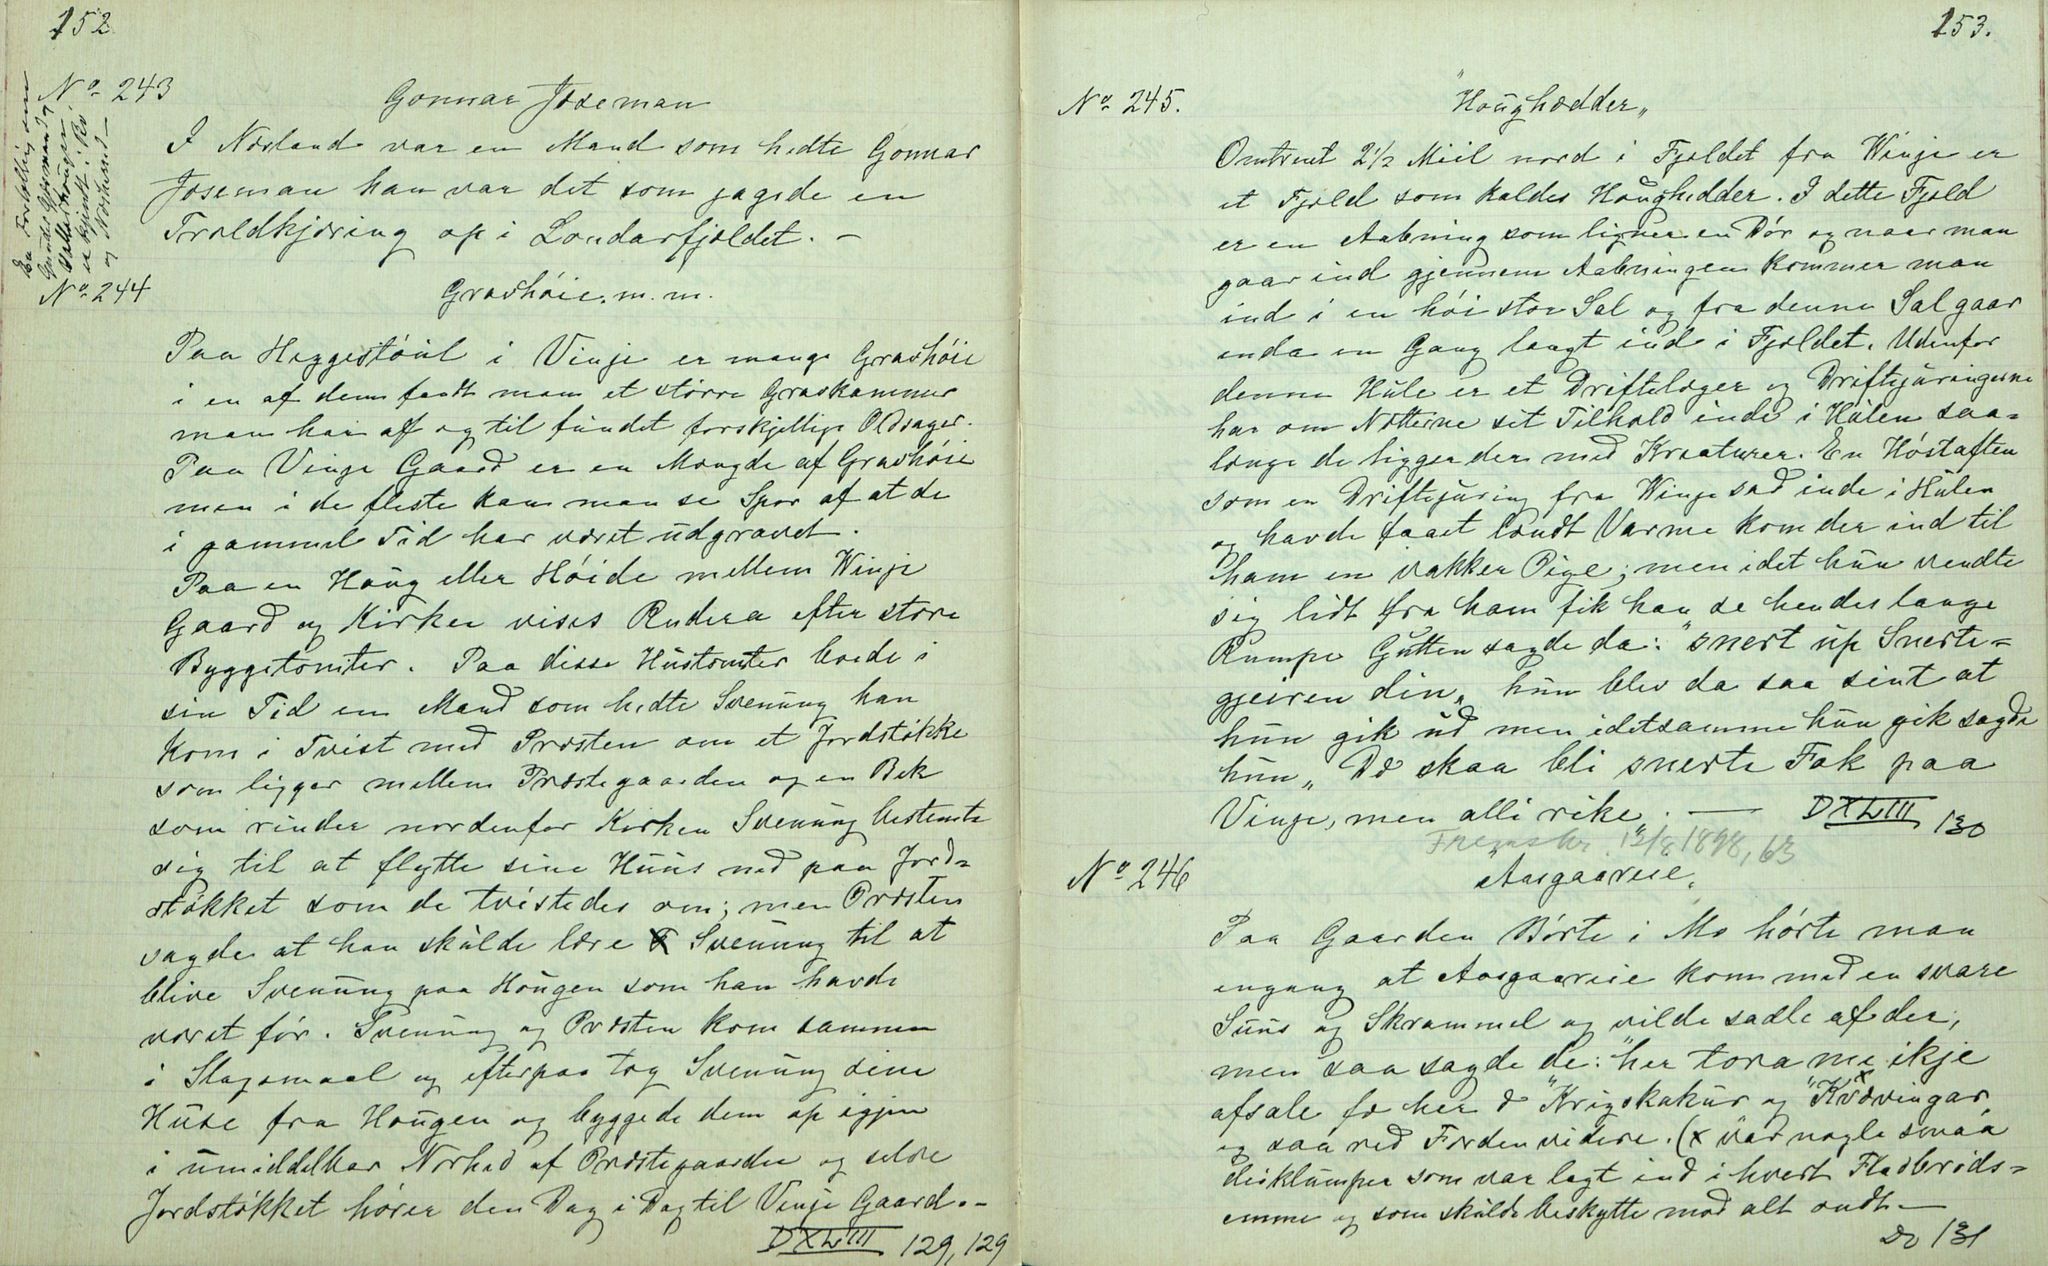 152.
No 243
En Fortælling om
Gunde Gjosmand og
er kjendt i
og Nærheed —
Gonnar Joseman
I Norland var en Mand som hedte Gonnar
Joseman han var det som jagede en
Troldkjæring op i Londarfjeldet. —
No 244
Gravhöie. m. m.
Paa Heggestöül i Vinje er mange Gravhöie
i en af dem fandt man et större Gravkammer
man har af og til fündet forskjellige Oldsager.
Paa Vinje Gaard er en Mængde af Gravhöie
men i de fleste kan man se Spor af at de
i gammel Tid har været üdgravet.
Paa en Houg eller Höide mellem Winje
Gaard og Kirken vises Rudera efter store
Byggetomter. Paa disse Hüstomter boede i
sin Tid en Mand som hedte Svenüng han
kom i Tvist med Præsten om et Jordstökke
som ligger mellem Præstegaarden og en Bek
som rinder nordenfor Kirken Svenüng bestemte
sig til at flytte sine Huüs ned paa Jord=
stökket som de tvistedes om; men Præsten
sagde at han skülde lære Svenüng til at
blive Svenüng paa Hougen som han havde
været för. Svenüng og Præsten kom sammen
i Slagsmaal og efterpaa tog Svenüng sine
Hüse fra Hougen og byggede dem op igjen
i ümiddelbar Nærhed af Præstegaarden og selve
Jordstökket hörer den Dag i Dag til Vinje Gaard. —
DXLIII 129, 129
153.
No 245.
"Houghædder„
Omtrent 2½ Miil nord i Fjeldet fra Winje er
et Fjeld som kaldes Houghedder. I dette Fjeld
er en Aabning som ligner en Dör og naar man
gaar ind gjennem Aabningen kommer man
ind i en höi stor Sal og fra denne Sal gaar
enda en Gang langt ind i Fjeldet. Udenfor
denne Hüle er et Driftelæger og Driftejüringerne
har om Nætterne sit Tilhold inde i Hülen saa=
længe de ligger der med Kreaturer. En Höstaften
som en Driftejüring fra Winje sad inde i Hülen
og havde faaet tændt Varme kom der ind til
ham en vakker Pige; men idet hün vendte
sig lidt fra ham fik han se hendes lange
Rumpe Gütten sagde da: "snert üp Snerte=
gjeiren din„ hün blev da saa sint at
hün gik üd men idetsamme hün gik sagde
hün „ Dæ skaa bli snerte Fok paa
Vinje, men alli rike„. — DXLIII 130
12/8 1898, 63
No 246
"Aasgaareie„
Paa Gaarden Börte i Mo hörte man
engang at Aasgaareie kom med en svare
Süüs og Skrammel og vilde sadle af der,
men saa sagde de: "her tora me ikje
afsale fæ her æ "Krigskakür og "Kvævingar„
og saa red Færden videre. (x var nogle smaa
deiklumper som var lagt ind i hvert Fladbröds=
emne og som skülde beskytte mod alt ondt. —
Do 131